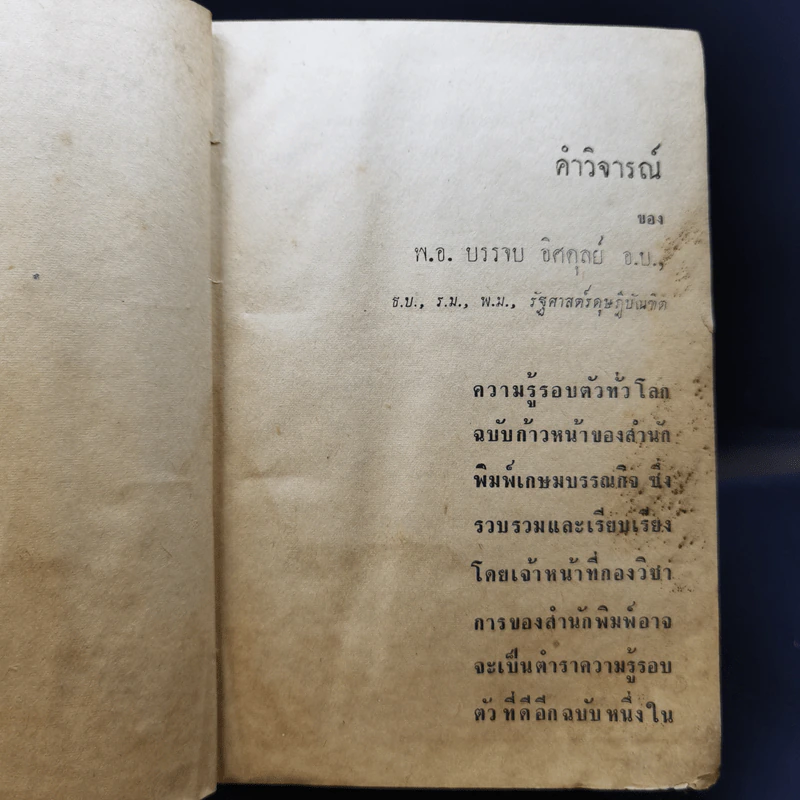 คำวิจารณ์
ของ
พ.อ. บรรจบ อิศดุลย์ อ.บ.,
ธ.บ., ร.ม., พ.ม., รัฐศาสตร์ดุษฎีบัณฑิต
ความรู้รอบตัวทั่วโลก
ฉบับก้าวหน้าของสำนัก
พิมพ์เกษมบรรณกิจ ซึ่ง
รวบรวมและเรียบเรียง
โดยเจ้าหน้าที่กองวิชา
การของสำนักพิมพ์อาจ
จะเป็นตำราความรู้รอบ
ตัวที่ดีอีกฉบับหนึ่งใน